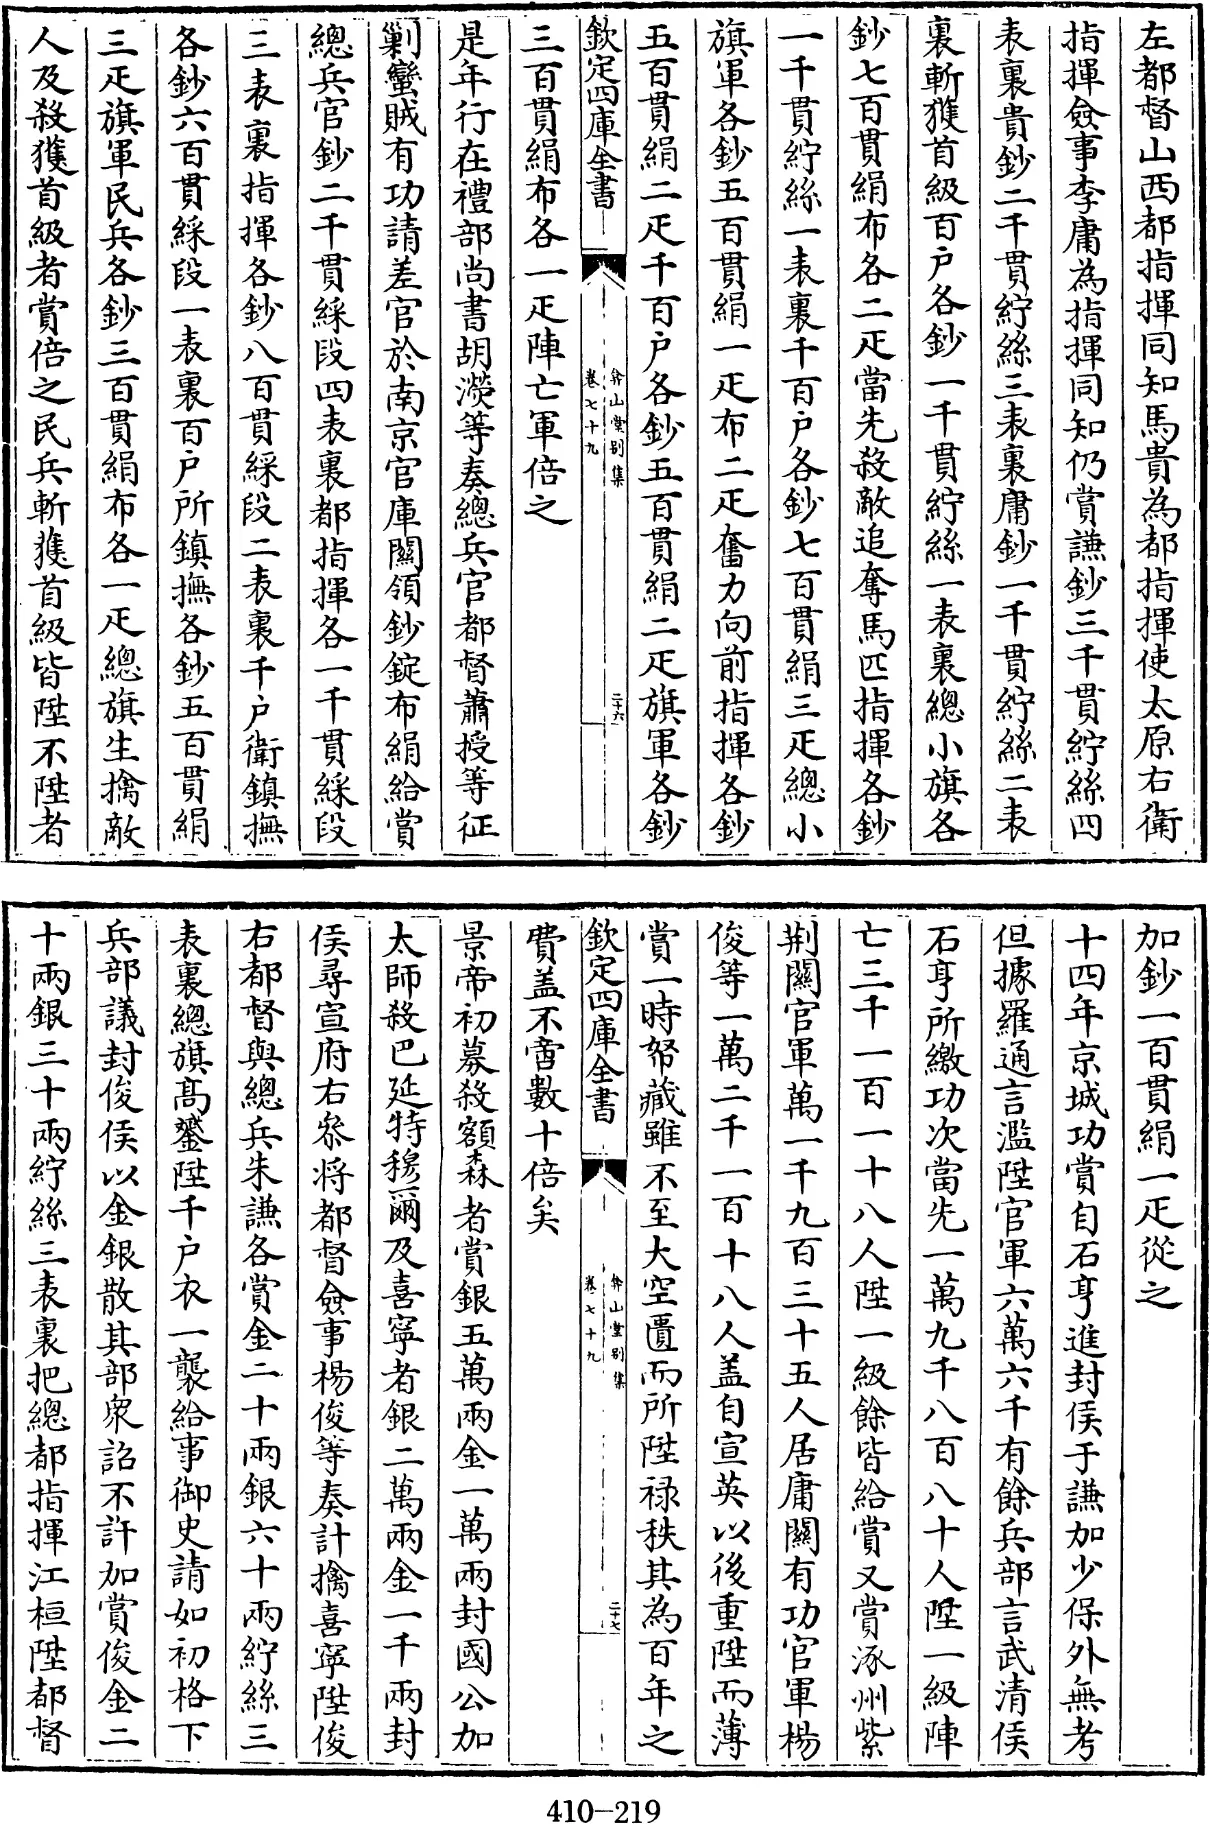 左都督山西都指揮同知馬貴為都指揮使太原右衛
指揮僉事李庸為指揮同知仍賞謙鈔三千貫紵絲四
表裏貴鈔二千貫紵絲三表裏庸鈔一千貫紵絲二表
裏斬獲首級百戶各鈔一千貫紵絲一表裏總小旗各
鈔七百貫絹布各二疋當先殺敵追奪馬匹指揮各鈔
一千貫紵絲一表裏千百戶各鈔七百貫絹三疋總小
旗軍各鈔五百貫絹一疋布二疋奮力向前指揮各鈔
五百貫絹二疋千百戶各鈔五百貫絹二疋旗軍各鈔
欽定四庫全書
弇山堂別集
卷七十九
二十六
三百貫絹布各一疋陣亡軍倍之
是年行在禮部尚書胡濙等奏總兵官都督蕭授等征
剿蠻賊有功請差官於南京官庫關領鈔錠布絹給賞
總兵官鈔二千貫綵段四表裏都指揮各一千貫綵段
三表裏指揮各鈔八百貫綵段二表裏千戶衛鎮撫
各鈔六百貫綵段一表裏百戶所鎮撫各鈔五百貫絹
三疋旗軍民兵各鈔三百貫絹布各一疋總旗生擒敵
人及殺獲首級者賞倍之民兵斬獲首級皆陞不陞者
加鈔一百貫絹一疋從之
十四年京城功賞自石亨進封侯于謙加少保外無考
但據羅通言濫陞官軍六萬六千有餘兵部言武清侯
石亨所繳功次當先一萬九千八百八十人陞一級陣
亡三千一百一十八人陞一級餘皆給賞又賞涿州紫
荆關官軍萬一千九百三十五人居庸關有功官軍楊
俊等一萬二千一百十八人盖自宣英以後重陞而薄
賞一時帑藏雖不至大空匱而所陞祿秩其為百年之
欽定四庫全書
弇山堂別集
卷七十九
二十七
費盖不啻數十倍矣
景帝初募殺額森者賞銀五萬兩金一萬兩封國公加
太師殺巴延特穆爾及喜寧者銀二萬兩金一千兩封
侯尋宣府右叅將都督僉事楊俊等奏計擒喜寧陞俊
右都督與總兵朱謙各賞金二十兩銀六十兩紵絲三
表裏總旗髙鑾陞千戶衣一襲給事御史請如初格下
兵部議封俊侯以金銀散其部衆詔不許加賞俊金二
十兩銀三十兩紵絲三表裏把總都指揮江桓陞都督
410-219